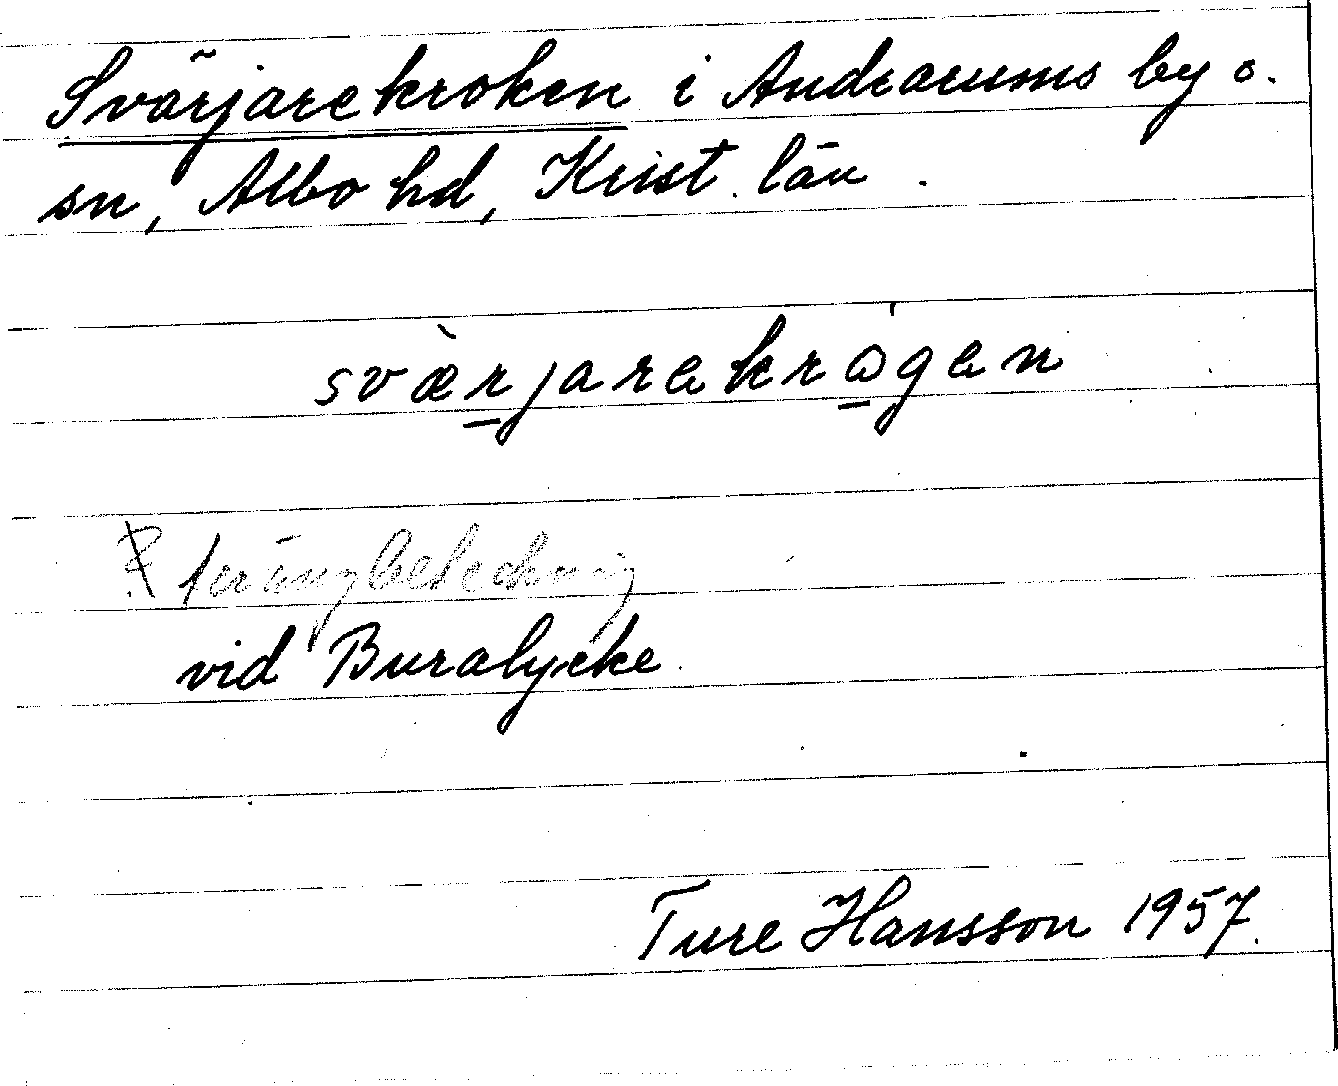 Svärjarekroken i Andrarums by o.
sn, Albo hd, Krist. län.
svæ̀rjarekrågen
terrängbeteckning
vid Buralycke.
Ture Hansson 1957.